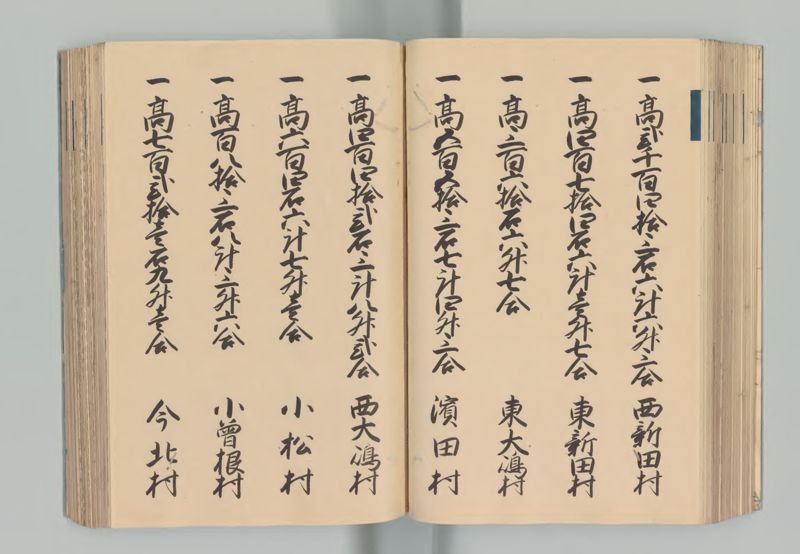 一 高弐千百四拾三石六斗六升三合 西新田村
一 高四百七拾四石六斗壱升七合 東新田村
一 高三百六拾石六升七合 東大嶋村
一 高五百五拾三石七斗四升三合 濱田村
一 高四百四拾弐石三斗八升弐合 西大嶋村
一 高六百四石六斗七升壱合 小松村
一 高百八拾三石八斗三升六合 小曾根村
一 高七百弐拾壱石九升壱合 今北村